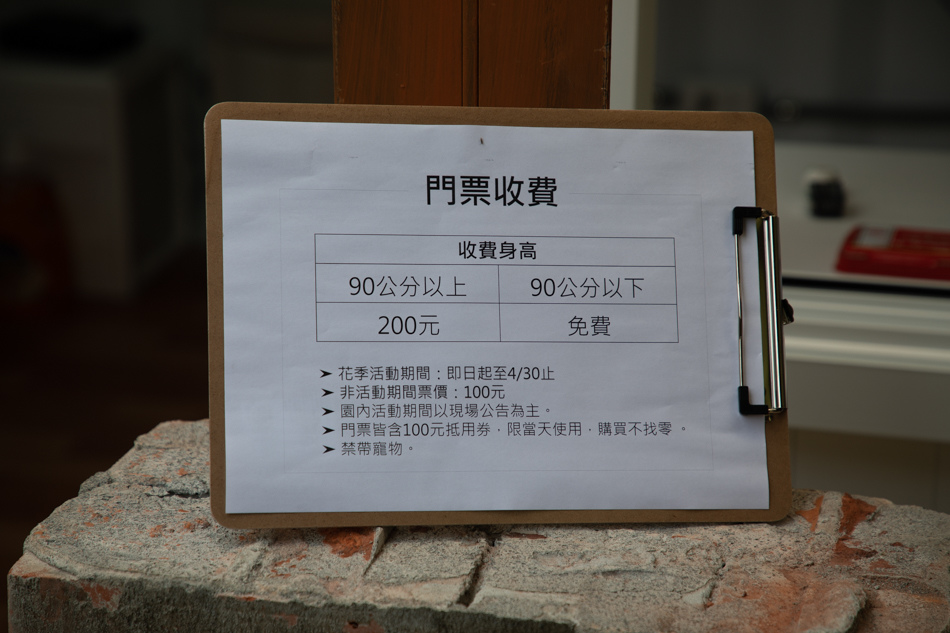 門票收費
收費身高
90公分以上 90公分以下
200元 免費
➤ 花季活動期間：即日起至4/30止
➤ 非活動期間票價：100元
➤ 園內活動期間以現場公告為主。
➤ 門票皆含100元抵用券，限當天使用，購買不找零。
➤ 禁帶寵物。